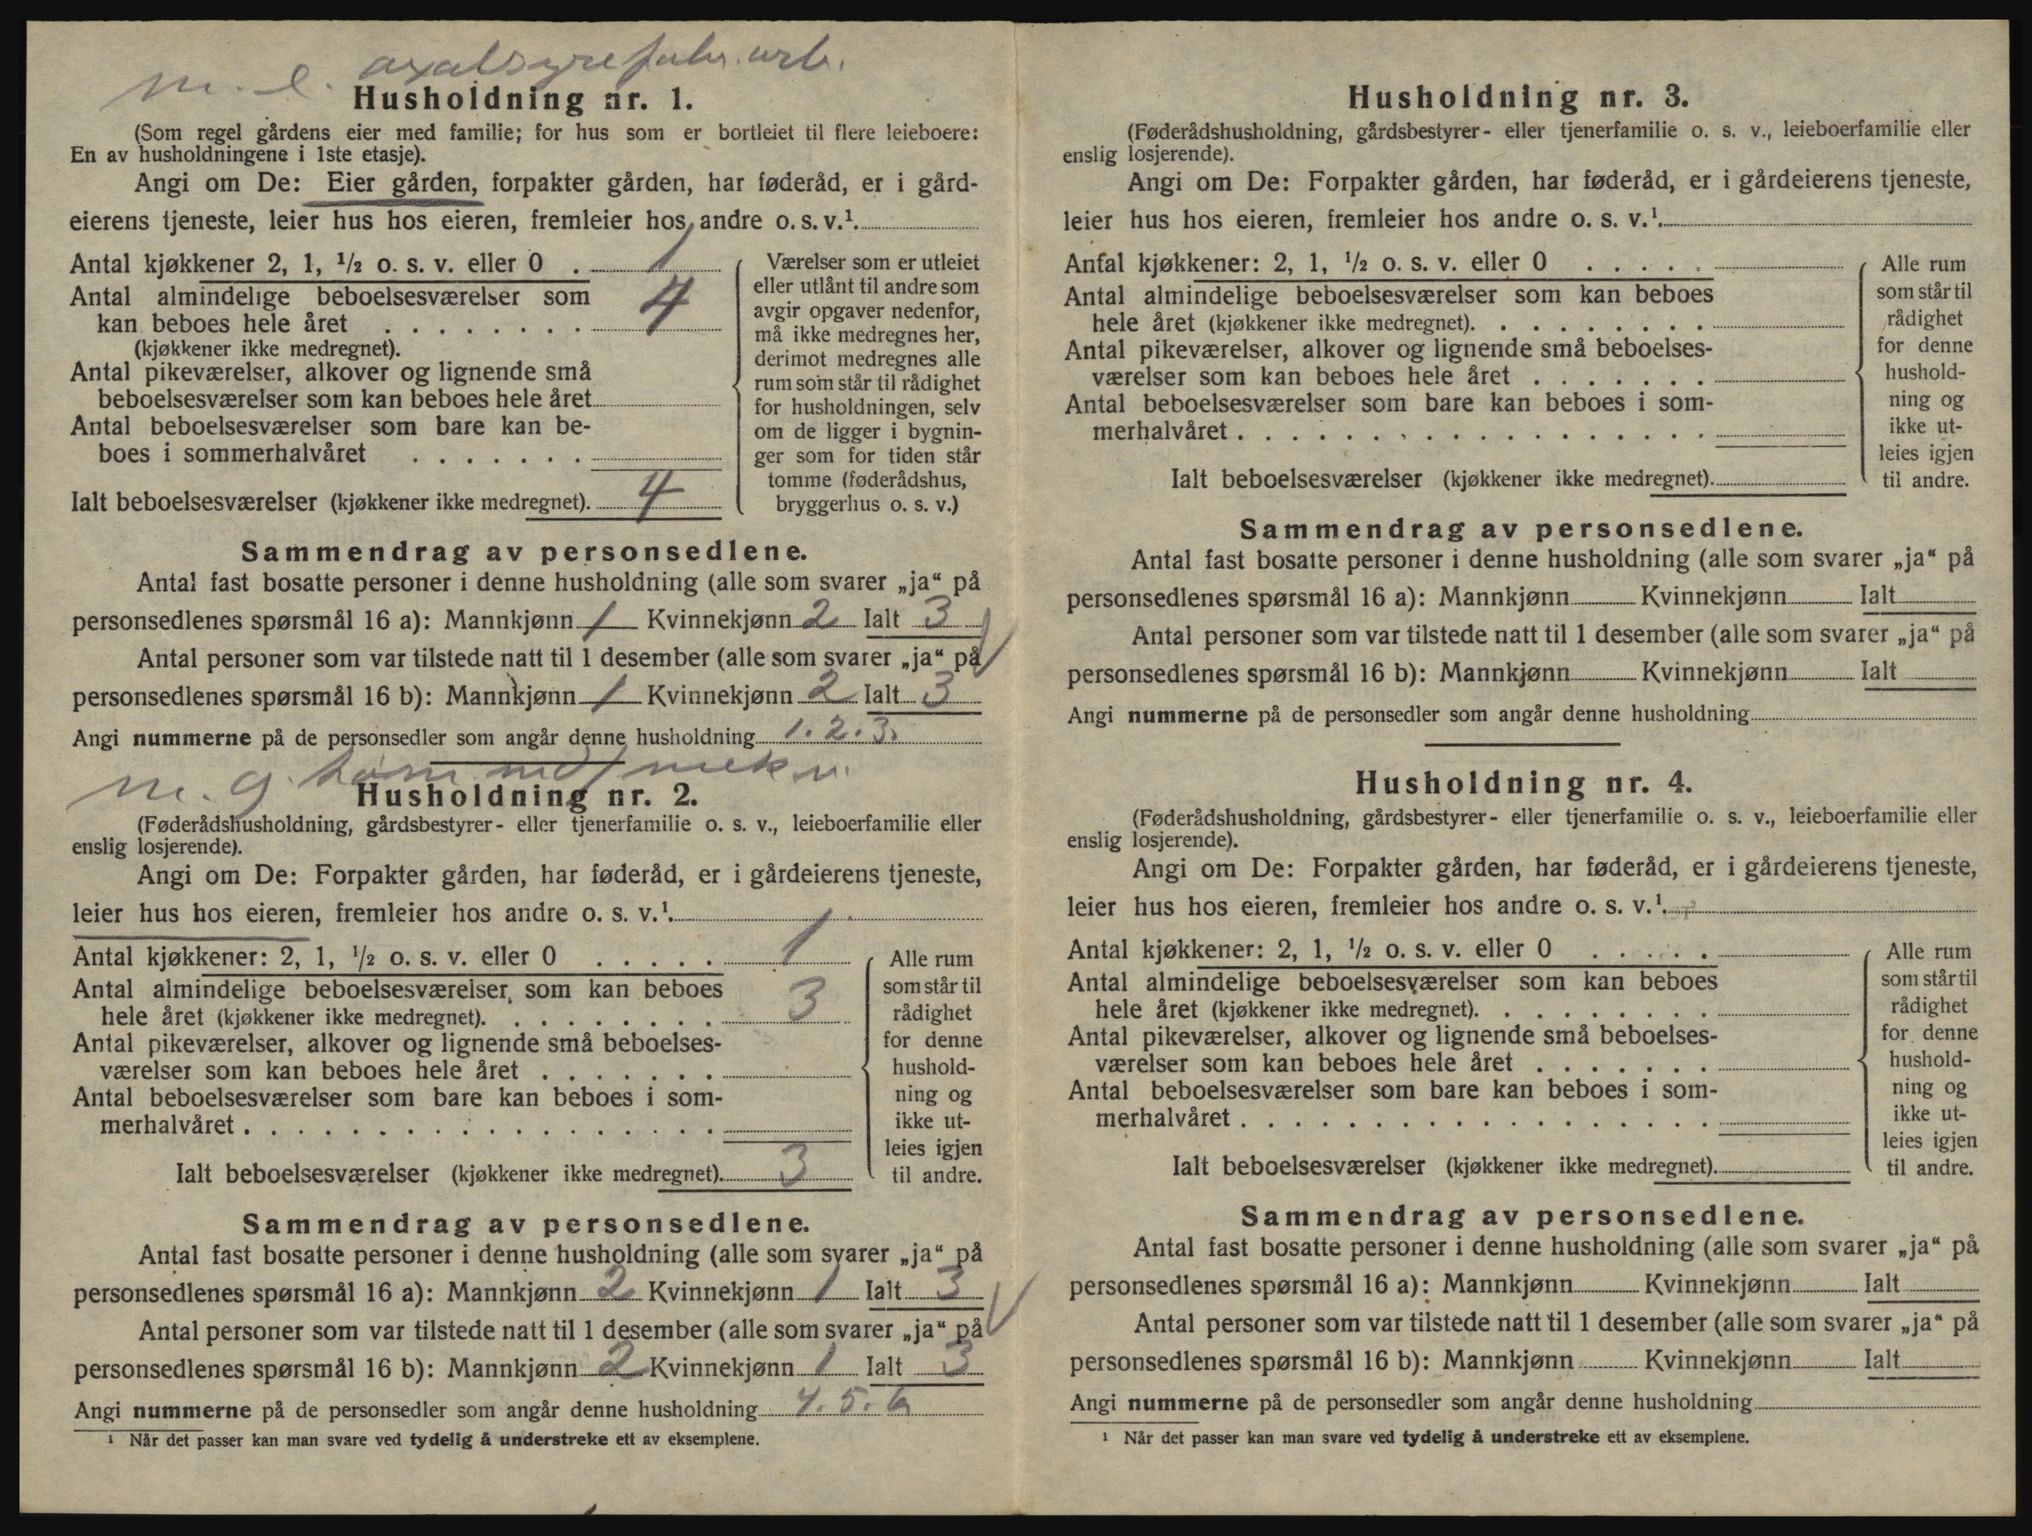 m. e. oxalsyrefabr. arb.
Husholdning nr. 1.
(Som regel gårdens eier med familie; for hus som er bortleiet til flere leieboere:
En av husholdningene i 1ste etasje).
Angi om De: Eier gården, forpakter gården, har føderåd, er i gård-
eierens tjeneste, leier hus hos eieren, fremleier hos andre o. s. v.¹.
Antal kjøkkener 2, 1, ½ o. s. v. eller 0 . 1
Antal almindelige beboelsesværelser som
kan beboes hele året . . . . . . . . 4
(kjøkkener ikke medregnet).
Antal pikeværelser, alkover og lignende små
beboelsesværelser som kan beboes hele året
Antal beboelsesværelser som bare kan be-
boes i sommerhalvåret . . . . . . .
Ialt beboelsesværelser (kjøkkener ikke medregnet). 4
Værelser som er utleiet
eller utlånt til andre som
avgir opgaver nedenfor,
må ikke medregnes her,
derimot medregnes alle
rum som står til rådighet
for husholdningen, selv
om de ligger i bygnin-
ger som for tiden står
tomme (føderådshus,
bryggerhus o. s. v.)
Sammendrag av personsedlene.
Antal fast bosatte personer i denne husholdning (alle som svarer „ja“ på
personsedlenes spørsmål 16 a): Mannkjønn 1 Kvinnekjønn 2 Ialt 3
Antal personer som var tilstede natt til 1 desember (alle som svarer „ja“ på
personsedlenes spørsmål 16 b): Mannkjønn 1 Kvinnekjønn 2 Ialt 3
Angi nummerne på de personsedler som angår denne husholdning 1. 2. 3.
m. g.
Husholdning nr. 2.
(Føderådshusholdning, gårdsbestyrer- eller tjenerfamilie o. s. v., leieboerfamilie eller
enslig losjerende).
Angi om De: Forpakter gården, har føderåd, er i gårdeierens tjeneste,
leier hus hos eieren, fremleier hos andre o. s. v.¹.
Antal kjøkkener: 2, 1, ½ o. s. v. eller 0 . . . . . 1
Antal almindelige beboelsesværelser som kan beboes
hele året (kjøkkener ikke medregnet). . . . . . . . . 3
Antal pikeværelser, alkover og lignende små beboelses-
værelser som kan beboes hele året . . . . . . .
Antal beboelsesværelser som bare kan beboes i som-
merhalvåret . . . . . . . . . . . . . . . . . .
Ialt beboelsesværelser (kjøkkener ikke medregnet). 3
Alle rum
som står til
rådighet
for denne
hushold-
ning og
ikke ut-
leies igjen
til andre.
Sammendrag av personsedlene.
Antal fast bosatte personer i denne husholdning (alle som svarer „ja“ på
personsedlenes spørsmål 16 a): Mannkjønn 2 Kvinnekjønn 1 Ialt 3
Antal personer som var tilstede natt til 1 desember (alle som svarer „ja“ på
personsedlenes spørsmål 16 b): Mannkjønn 2 Kvinnekjønn 1 Ialt 3
Angi nummerne på de personsedler som angår denne husholdning 4. 5. 6
¹ Når det passer kan man svare ved tydelig å understreke ett av eksemplene.
Husholdning nr. 3.
(Føderådshusholdning, gårdsbestyrer- eller tjenerfamilie o. s. v., leieboerfamilie eller
enslig losjerende).
Angi om De: Forpakter gården, har føderåd, er i gårdeierens tjeneste,
leier hus hos eieren, fremleier hos andre o. s. v.¹.
Antal kjøkkener: 2, 1, ½ o. s. v. eller 0 . . . . .
Antal almindelige beboelsesværelser som kan beboes
hele året (kjøkkener ikke medregnet). . . . . . . . .
Antal pikeværelser, alkover og lignende små beboelses-
værelser som kan beboes hele året . . . . . . .
Antal beboelsesværelser som bare kan beboes i som-
merhalvåret . . . . . . . . . . . . . . . . . .
Ialt beboelsesværelser (kjøkkener ikke medregnet).
Alle rum
som står til
rådighet
for denne
hushold-
ning og
ikke ut-
leies igjen
til andre.
Sammendrag av personsedlene.
Antal fast bosatte personer i denne husholdning (alle som svarer „ja“ på
personsedlenes spørsmål 16 a): Mannkjønn Kvinnekjønn Ialt
Antal personer som var tilstede natt til 1 desember (alle som svarer „ja“ på
personsedlenes spørsmål 16 b): Mannkjønn Kvinnekjønn Ialt
Angi nummerne på de personsedler som angår denne husholdning
Husholdning nr. 4.
(Føderådshusholdning, gårdsbestyrer- eller tjenerfamilie o. s. v., leieboerfamilie eller
enslig losjerende).
Angi om De: Forpakter gården, har føderåd, er i gårdeierens tjeneste,
leier hus hos eieren, fremleier hos andre o. s. v.¹.
Antal kjøkkener: 2, 1, ½ o. s. v. eller 0 . . . . .
Antal almindelige beboelsesværelser som kan beboes
hele året (kjøkkener ikke medregnet). . . . . . . . .
Antal pikeværelser, alkover og lignende små beboelses-
værelser som kan beboes hele året . . . . . . .
Antal beboelsesværelser som bare kan beboes i som-
merhalvåret . . . . . . . . . . . . . . . . . .
Ialt beboelsesværelser (kjøkkener ikke medregnet).
Alle rum
som står til
rådighet
for denne
hushold-
ning og
ikke ut-
leies igjen
til andre.
Sammendrag av personsedlene.
Antal fast bosatte personer i denne husholdning (alle som svarer „ja“ på
personsedlenes spørsmål 16 a): Mannkjønn Kvinnekjønn Ialt
Antal personer som var tilstede natt til 1 desember (alle som svarer „ja“ på
personsedlenes spørsmål 16 b): Mannkjønn Kvinnekjønn Ialt
Angi nummerne på de personsedler som angår denne husholdning
¹ Når det passer kan man svare ved tydelig å understreke ett av eksemplene.